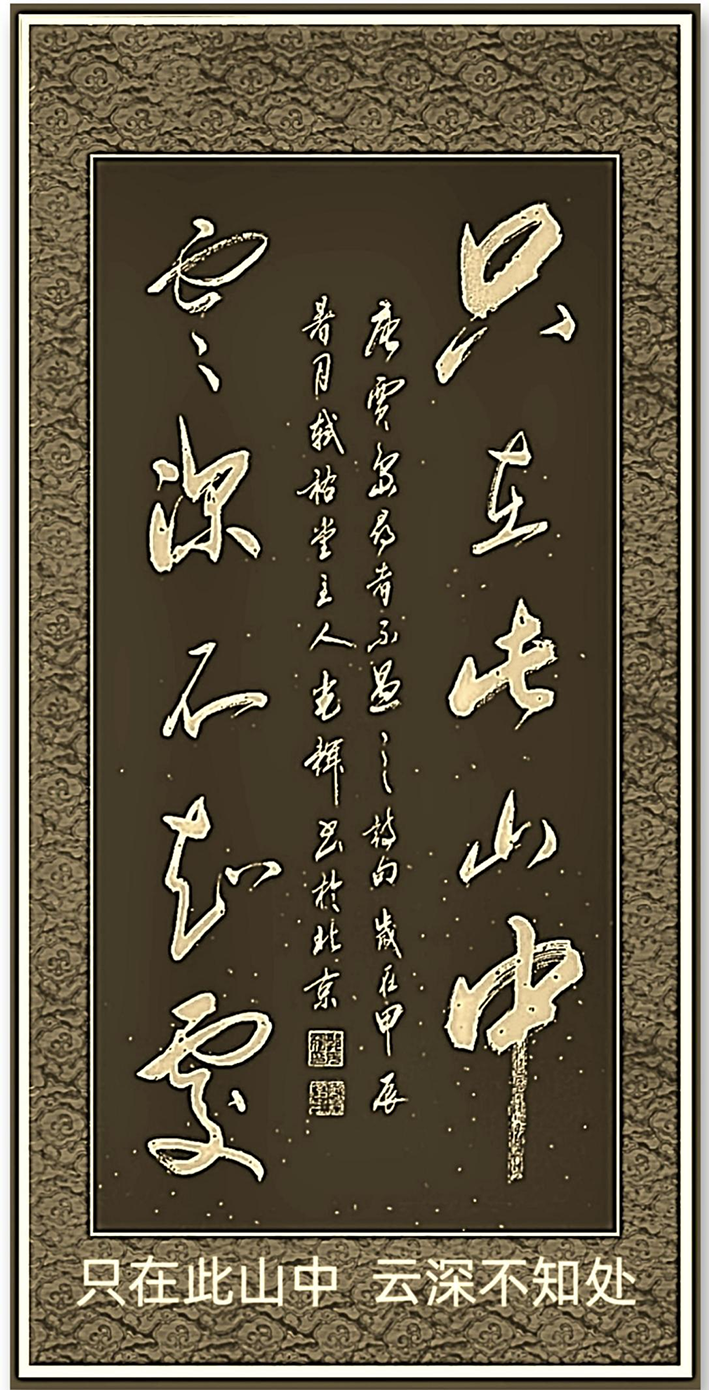 只在此山中
云深不知處
唐賈島尋者不遇之詩句歲在甲辰
暑月軾祐堂主人光輝书於北京
只在此山中 云深不知处